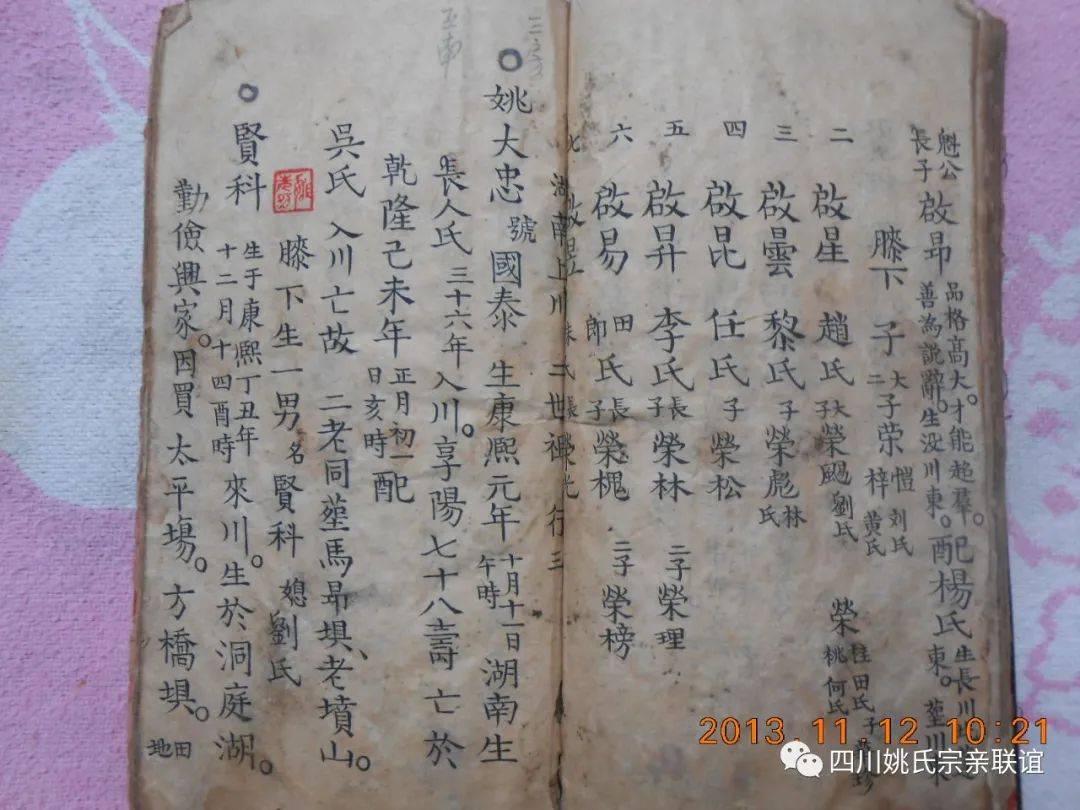 魁公
長子
啟昻 品格高大。才能超羣。配楊氏 生長川
善為説辭。生没川東。 東。塟川東
膝下 子 大子荣 愷 刘氏
二 梓 黄氏
二 啟星 趙氏 大子 榮颺 劉氏 榮 桂 田氏 子
桃 何氏
三 啟曇 黎氏 子 榮彪 林氏
四 啟昆 任氏 子 榮松
五 啟昇 李氏 長子 榮林 二子 榮理
六 啟易 田氏 長子 榮槐 二子 榮榜
郎
七 啟
湖南上川二世 行三
三房
姚大忠 號 國泰 生康熙元年 十月十一日 湖南生
午時
長人氏 三十六年入川。享陽七十八壽 亡於
乾隆己未年 正月初一 配
日亥時
吳氏 入川亡故 二老同塟馬昻埧、老墳山。
膝下生一男 名 賢科 媳 劉氏
賢科 生于康熙丁丑年 來川。生於洞庭湖。
十二月十四酉時
勤儉興家。因買太平塲。方橋埧。田
地
2013.11.12 10:21
四川姚氏宗亲联谊